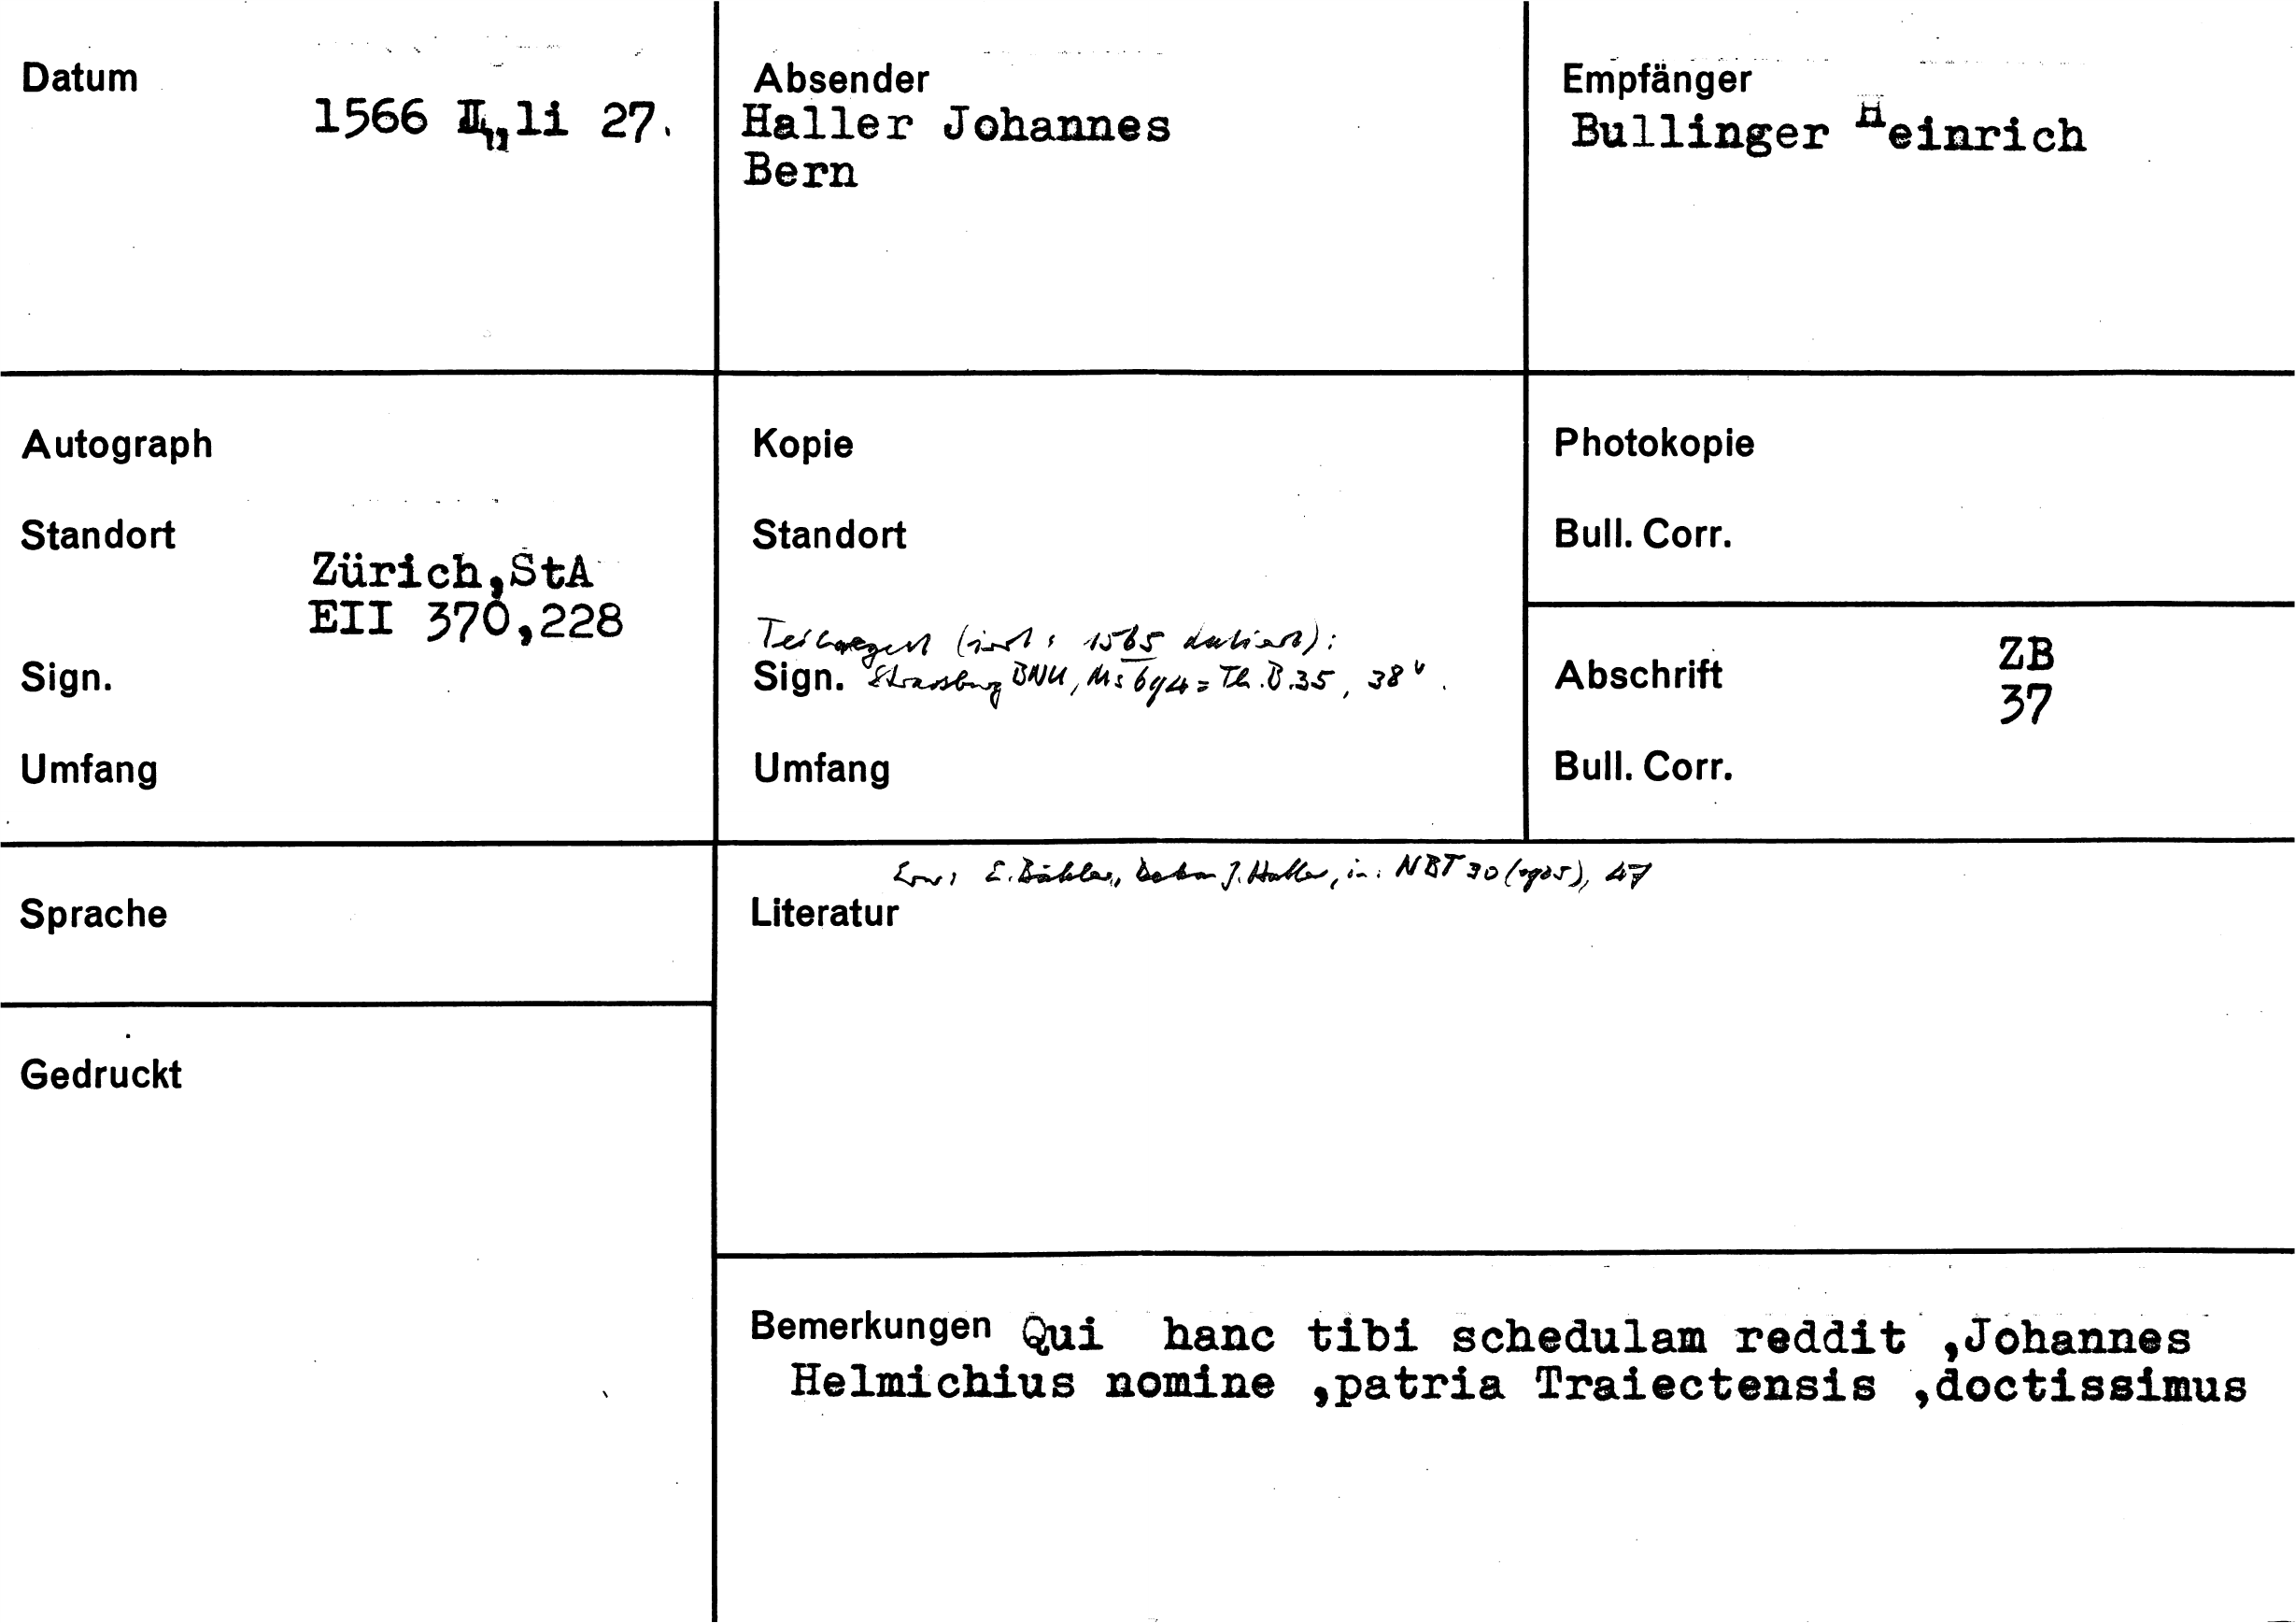 Datum
1566 Juli 27.
Absender
Haller Johannes
Bern
Empfänger
Bullinger Heinrich
Autograph
Standort
Zürich,StA
EII 370,228
Sign.
Umfang
Kopie
Standort
Teilregest (irrt. 1565 datiert):
Sign. Strassburg BNU, Ms 694 = Th.B.35, 38v.
Umfang
Photokopie
Bull. Corr.
Abschrift
ZB
37
Bull. Corr.
Sprache
Erw: E. Bähler, Dekan J. Haller, in: NBT 30 (1925), 47
Literatur
Gedruckt
Bemerkungen Qui hanc tibi schedulam reddit ,Johannes
Helmichius nomine ,patria Traiectensis ,doctissimus